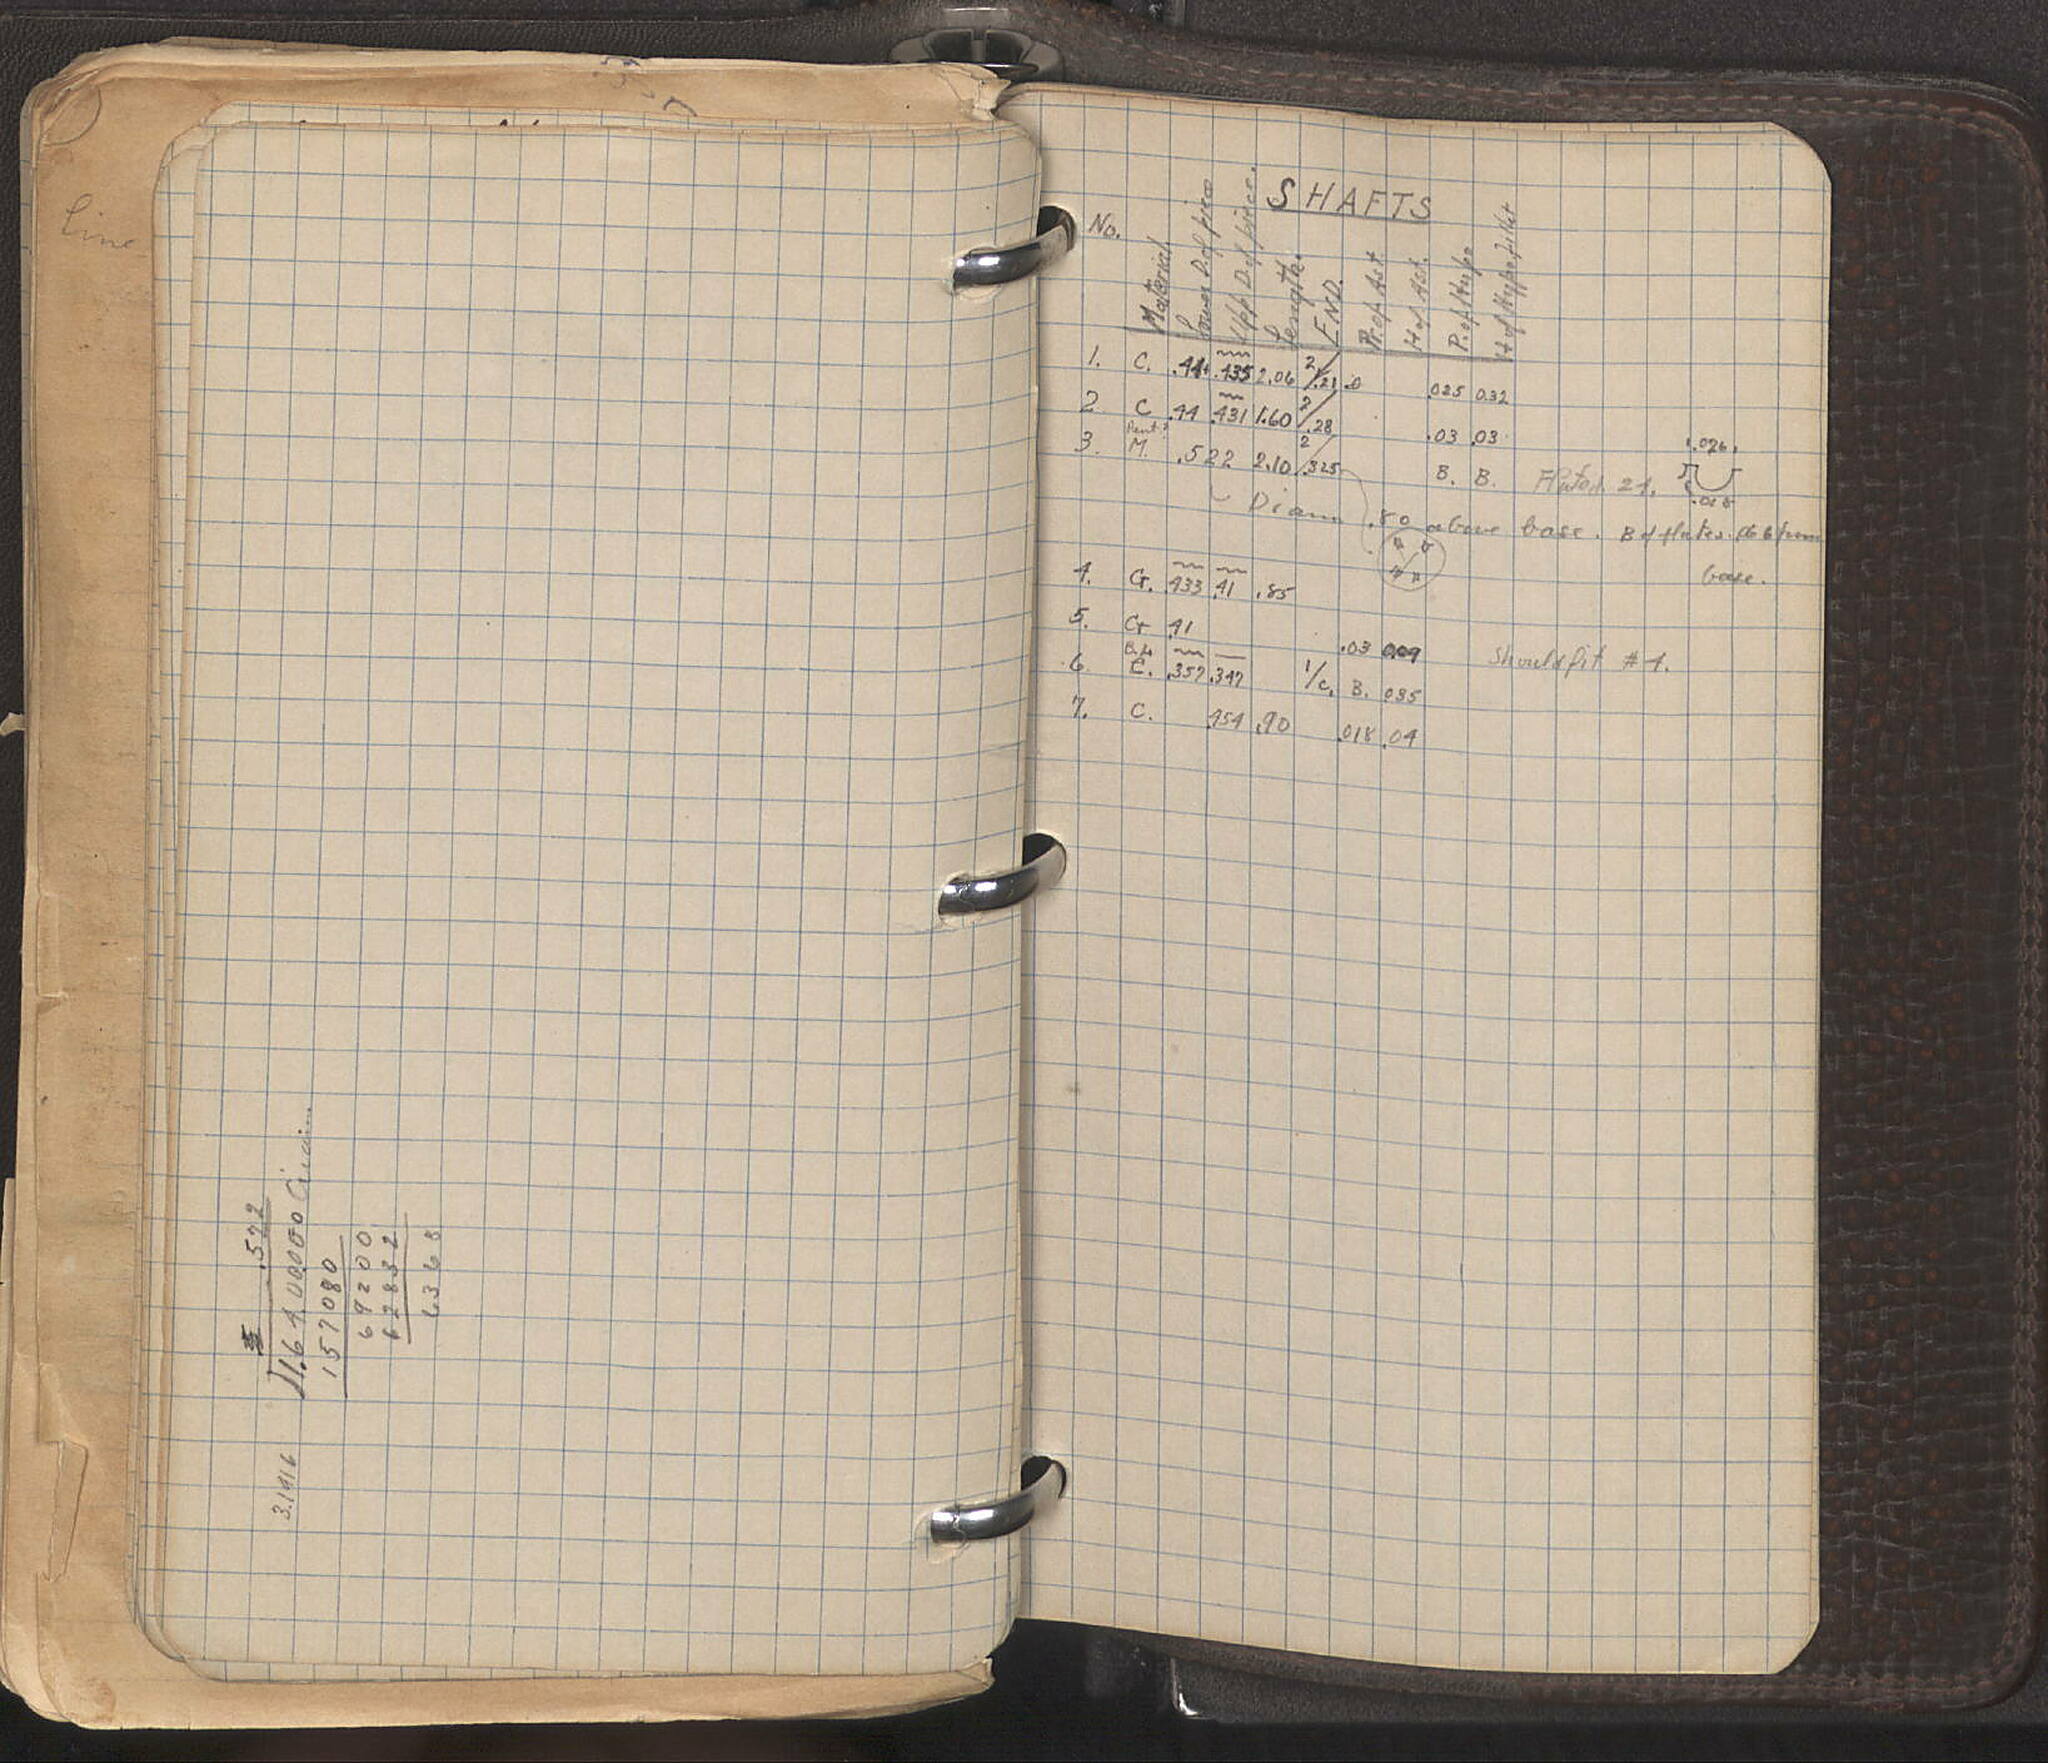 Line
3.1416
.522
1.64 00000 Circum
157080
69200
62832
6368
SHAFTS
No. Material Lower D. of piece Upp D. of piece. Length. END. P. of Ast H. of Ast. P. of Hypo H. of Hypo fillet
1. C. .44+ .435 2.06 2/.21 .0 .025 .032
2 C .44 .431 1.60 2/.28 .03 .03
3. Pent? M. .522 2.10 2/.325 B. B. Fluted. 24. .026 .018
Diam .80 above base. B of flutes .06 from base.
4. Cr. .433 .41 .85
5. Cr .41 .03 0.09 Should fit #4.
6. C. .357 .347 1/c. B. .035
7. C. .454 .90 .018 .04